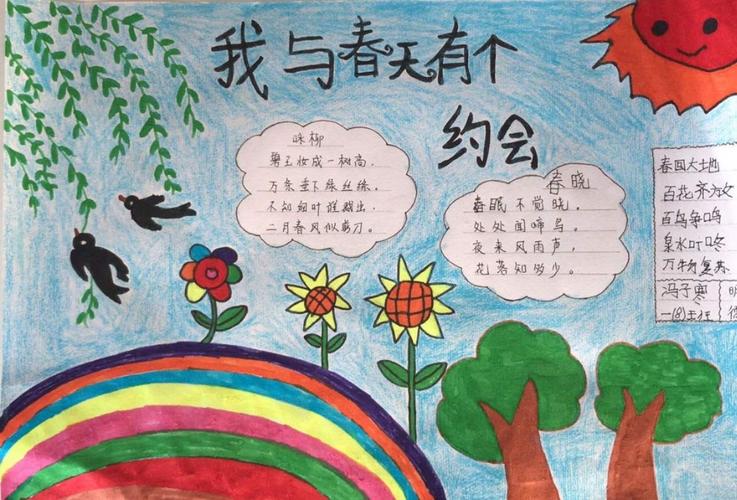 我与春天有个
约会
咏柳
碧玉妆成一树高.
万条垂下绿丝绦.
不知细叶谁裁出.
二月春风似剪刀.
春晓
春眠不觉晓。
处处闻啼鸟。
夜来风雨声,
花落知多少。
春回大地
百花齐放
百鸟争鸣
泉水叮咚
万物复苏
冯子寒
一(8)王狂